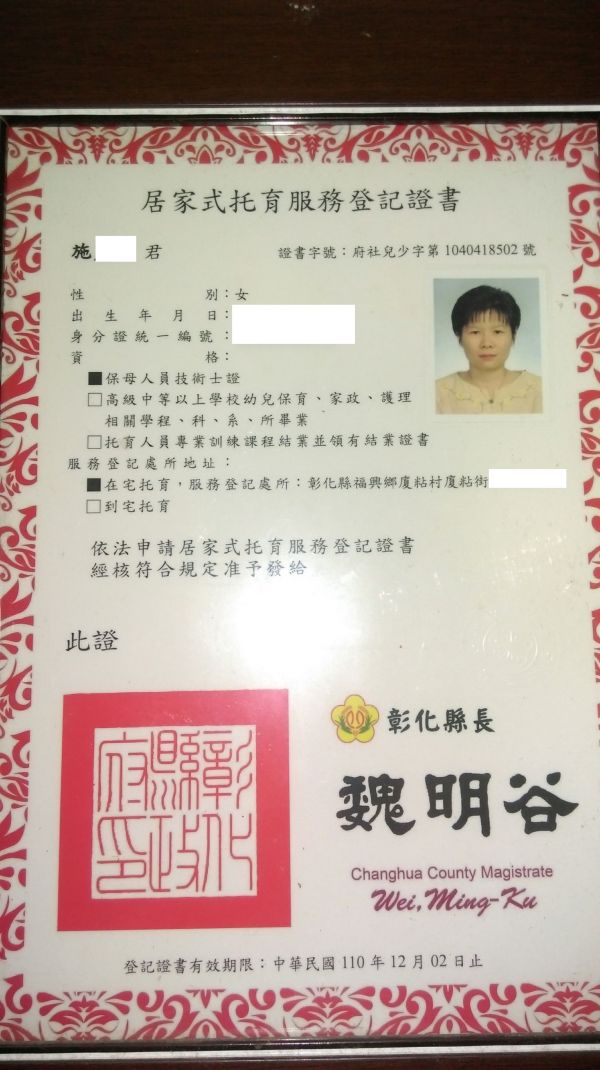 居家式托育服務登記證書
施 君 證書字號：府社兒少字第1040418502號
性別：女
出生年月日：
身分證統一編號：
資格：
■保母人員技術士證
□高級中等以上學校幼兒保育、家政、護理
相關學程、科、系、所畢業
□托育人員專業訓練課程結業並領有結業證書
服務登記處所地址：
■在宅托育，服務登記處所：彰化縣福興鄉廈粘村廈粘街
□到宅托育
依法申請居家式托育服務登記證書
經核符合規定准予發給
此證
彰化縣政府印
彰化縣長
魏明谷
Changhua County Magistrate
Wei, Ming-Ku
登記證書有效期限：中華民國110年12月02日止